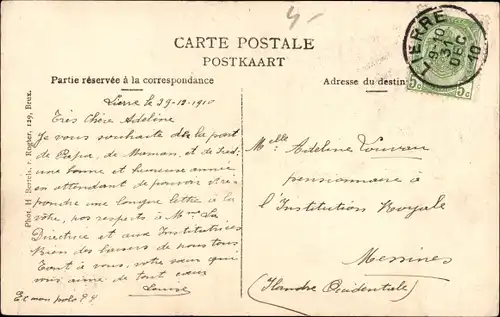 4-
CARTE POSTALE
POSTKAART
Partie réservée à la correspondance
Adresse du destin
LIERRE
9-10
31
DEC
10
5c 5c
Phot. H. Bertels, r. Rogier, 129, Brux.
Lierre le 29-12-1910
Très Chère Adeline
Je vous souhaite de la part
de Papa, de Maman, et de
une bonne et heureuse année
en attendant de pouvoir
pondre une longue lettre à la
vôtre, nos respects à Mme La
Directrice et aux Institutrices
Bien des baisers de nous tous
Tout à vous, votre sœur qui
vous aime de tout cœur
Louise
Et mon
Melle Adeline
pensionnaire à
l'Institution Royale
Messines
(Flandre Occidentale)